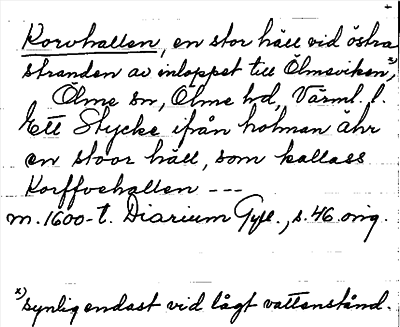 Korvhallen, en stor häll vid östra
stranden av inloppet till Ölmeviken,x)
Ölme sn, Ölme hd, Värml. l.
Ett Stycke ifrån holman ähr
en stoor häll, som kallass
Korffvehallen ---
m. 1600-t. Diarium Gyll., s. 46 orig.
x) synlig endast vid lågt vattenstånd.